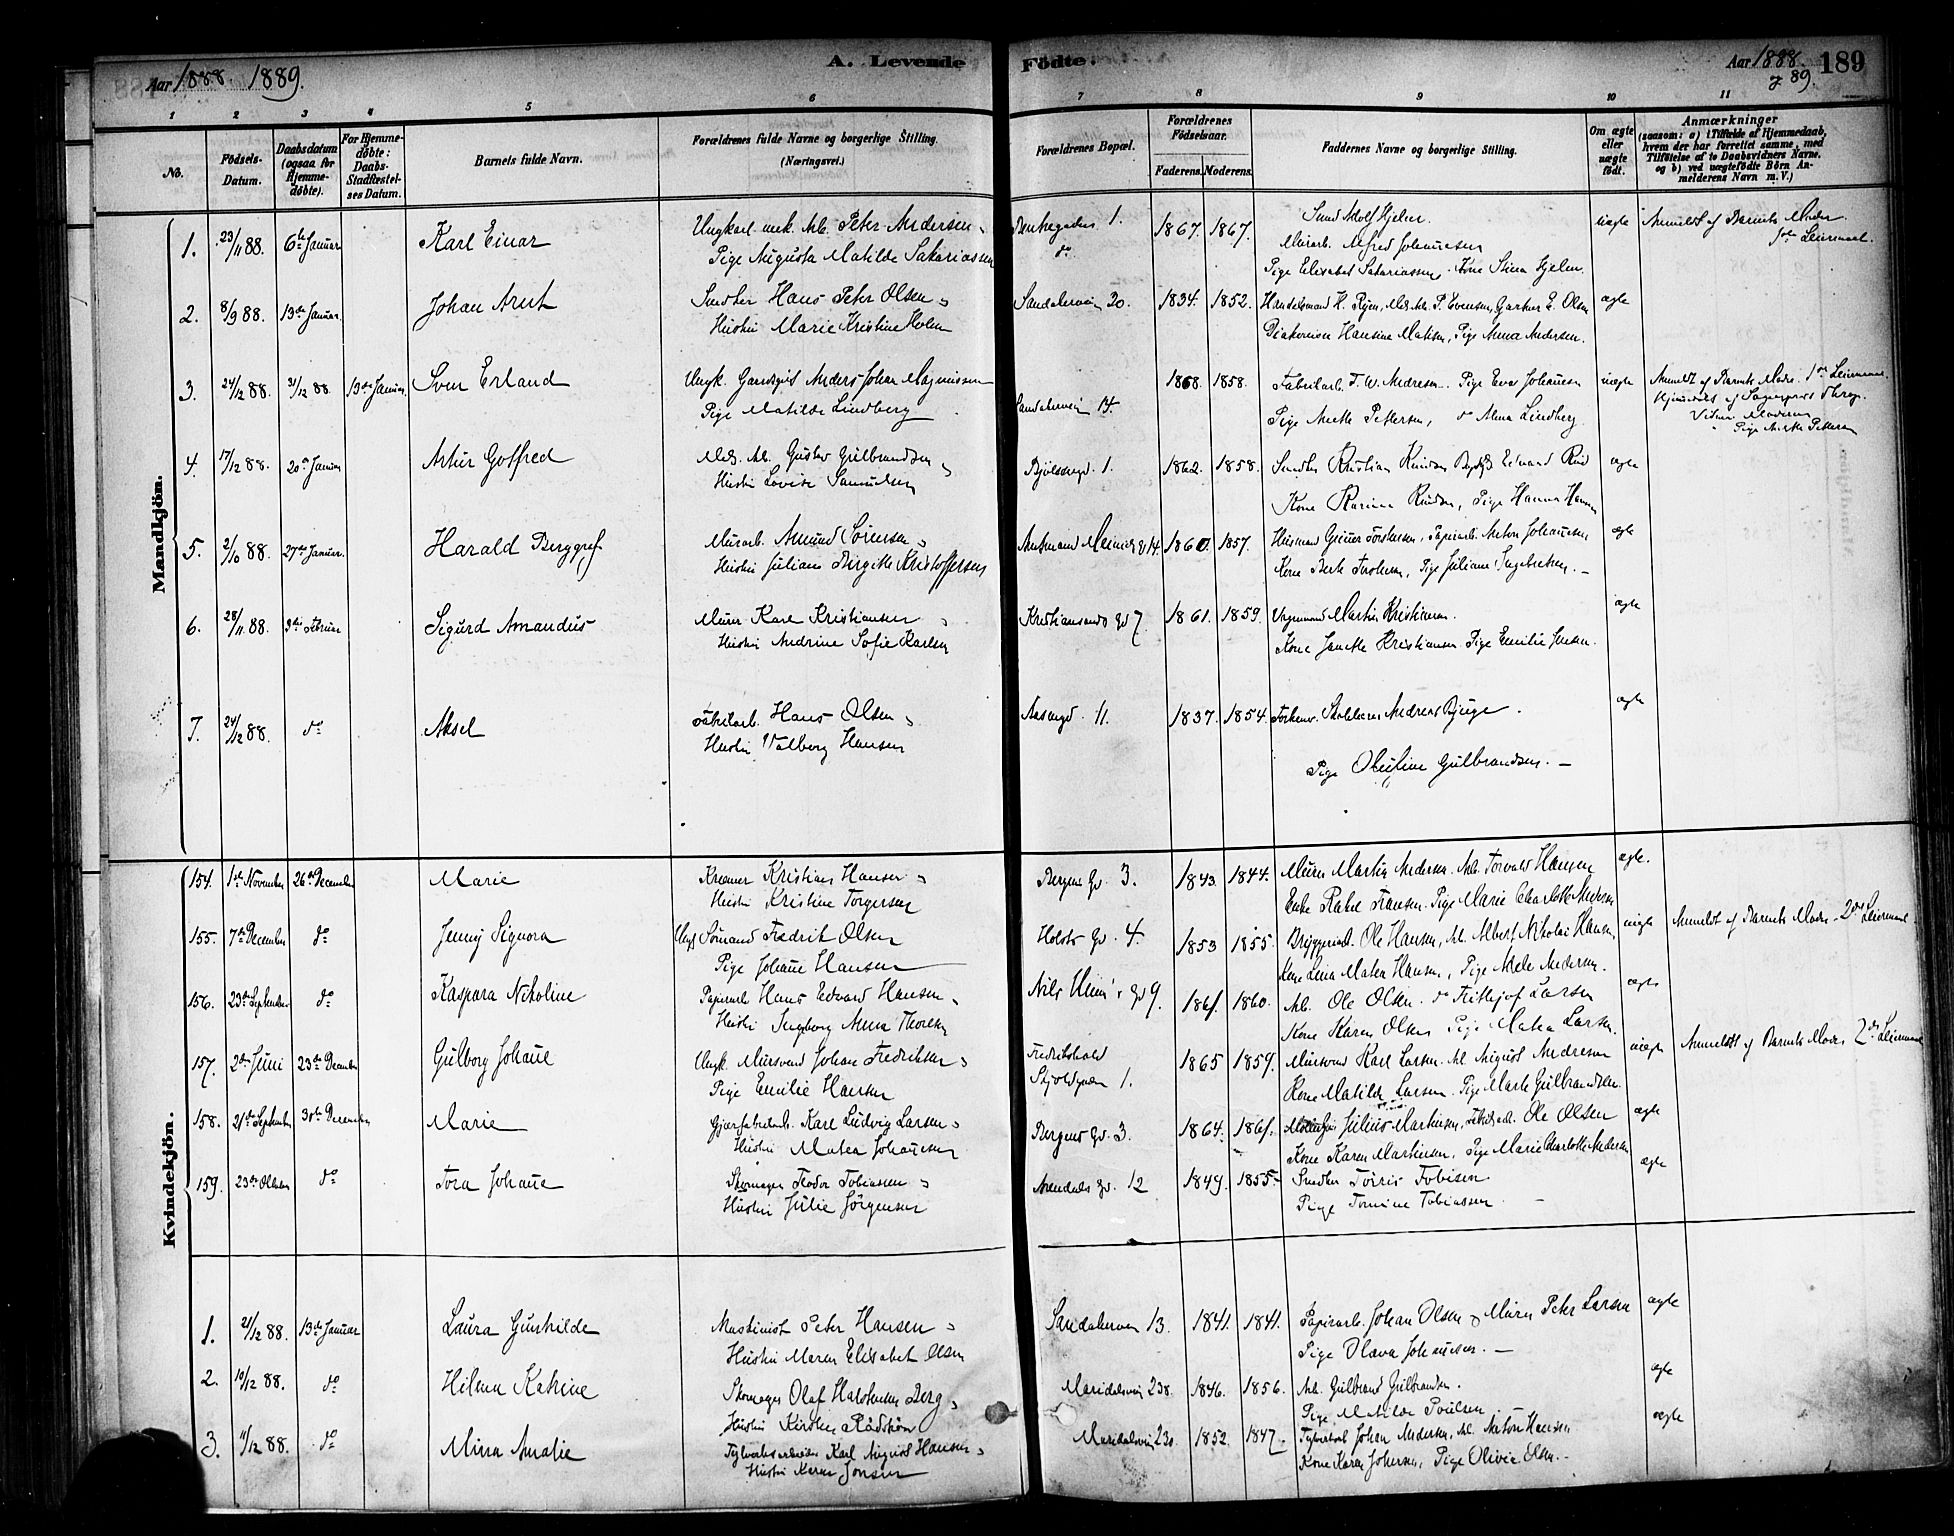 Aar 1888. 1889.
A. Levende Födte.
Aar 1888. 189
& 89.
1 2 3 4 5 6 7 8 9 10 11
No.
Födsels-Datum.
Daabsdatum (ogsaa for Hjemme-döbte).
For Hjemme-döbte: Daabs-Stadfæstel-ses Datum.
Barnets fulde Navn.
Forældrenes fulde Navne og borgerlige Stilling. (Næringsvei.)
Forældrenes Bopæl.
Forældrenes Födselsaar.
Faderens. Moderens.
Faddernes Navne og borgerlige Stilling.
Om ægte eller uægte födt.
Anmærkninger (saasom: a) i Tilfælde af Hjemmedaab, hvem der har forrettet samme, med Tilföielse af to Daabsvidners Navne, og b) ved uægtefödte Börn An-melderens Navn m. V.)
Mandkjön.
1. 23/11 88. 6te Januar Karl Einar Ungkarl mek. Arb. Peter Andersen 1. 1867. 1867. Smed Adolf Hjelm. uægte Anmeldt af Barnets Moder
do Murarb. Alfred Johannesen 1ste Leiermaal.
Pige Augusta Matilde Sakariassen Pige Elisabet Sakariassen, Kone Stina Hjelm
2. 8/9 88. 13de Januar. Johan Arnt Snedker Hans Peter Olsen Sandakerveien 20. 1834. 1852. Handelsmand H. Ryen, Mek. Arb. P. Evensen, Gartner E. Olsen ægte
Hustru Marie Kristine Holm Diakonisse Hansine Matisen, Pige Anna Andersen.
3. 24/12 88. 31/12 88. 13de Januar. Sven Erland Ungk. Anders Johan Magnussen Sandakerveien 14. 1868. 1858. Fabrikarb. T. W. Andresen Pige Eva Johansen uægte Anmeldt af Barnets Moder. 1ste Leiermaal.
Pige Matilde Lindberg Pige Mette Pettersen, do Alma Lindberg
Pige Mette Pettersen
4. 17/12 88. 20de Januar Artur Gotfred Mek. Arb. Gustav Gulbrandsen Bjölsengd. 1. 1862. 1858. Snedker Kristian Knudsen Edvard Rud ægte
Hustru Lovise Samuelsen Kone Karina Knudsen, Pige Hanna Hansen
5. 2/10 88. 27de Januar. Harald Berggref Murarb. Amund Sörensen Amtmand Meinichs Gd 14. 1860. 1857. Husmand Gunner Torstensen, Papirarb. Anton Johannesen ægte
Hustru Juliane Birgitte Kristoffersen Kone Berte Torstensen, Pige Juliane Ingebretsen. —
6. 28/11 88. 3die Februar Sigurd Amandus Murer Karl Kristiansen Kristiansands Gd 7 1861. 1859. Vognmand Martin Kristiansen. ægte
Hustru Andrine Sofie Karlsen Kone Janette Kristiansen. Pige Emilie Jensen.
7. 24/12 88. do Aksel Fabrikarb. Hans Olsen Aasengd. 11. 1837. 1854. Forhenv. Skolelærer Andreas Bjuge. ægte
Hustru Valborg Hansen Pige Oleséline Gulbrandsen. —
Kvindekjön.
154. 1ste November 26de December Marie Kræmer Kristian Hansen Bergens Gd. 3. 1843. 1844. Murer Martin Andersen Arb. Torvald Hansen ægte.
Hustru Kristine Torgersen Enke Rakel Fransen. Pige Marie Charlotte Andersen
155. 7de December do Jenny Signora Ungk Sömand Fredrik Olsen Holsts Gd. 4. 1853 1855. Bryggeriarb. Ole Hansen, Arb. Albert Nikolai Hansen, uægte Anmeldt af Barnets Moder. 2det Leiermaal
Pige Johanne Hansen Kone Lina Matea Hansen, Pige Adele Andersen.
156. 23de September do Kaspara Nikoline Papirarb Hans Edvard Hansen Nils Huus's Gd 9. 1861. 1860. Arb. Ole Olsen. do Fritjof Larsen ægte
Hustru Ingborg Anna Thoresen Kone Karen Olsen Pige Matea Larsen.
157. 2den Juni 23de December Gulborg Johanne Ungk. Mursvend Johan Fredriksen Fredrikshald 1865 1859. Mursvend Karl Larsen. Arb August Andresen uægte Anmeldt af Barnets Moder 2det Leiermaal
Pige Emilie Hansen 1. Kone Matilde Larsen. Pige Marte Gulbrandsen.
158. 21de September 30te December Marie Gjærfabrikarb. Karl Ludvig Larsen Bergens Gd. 3. 1864. 1861. Julius Martinsen, Fabrikarb. Ole Olsen ægte
Hustru Matea Johannesen Kone Karen Martinsen, Pige Marie Charlotte Andersen
159. 23de Oktober do Tora Johanne Skomager Teodor Tobiassen Arendals Gd. 12 1849. 1855. Snedker Torris Tobisen ægte
Hustru Julie Jörgensen Pige Tomine Tobiassen —
1. 21/12 88. 13de Januar Laura Gunhilde Maskinist Peter Hansen Sandakerveien 13. 1841. 1841. Papirarb. Johan Olsen & Murer Peter Larsen ægte
Hustru Maren Elisabet Olsen Pige Olava Johannesen. —
2. 10/12 88. do Hilma Katrine Skomager Olaf Halvorsen Berg Maridalsveien 230. 1846. 1856. Arb. Gulbrand Gulbrandsen. ægte
Hustru Kirsten Pige Matilde Poulsen
3. 11/12 88. do Mina Amalie Teglverksarbeider Karl August Hansen Maridalsveien 230. 1852. 1847. Johan Andersen, Arb. Anton Hansen ægte
Hustru Karen Jonsen Kone Karen Johansen, Pige Olivia Olsen. —